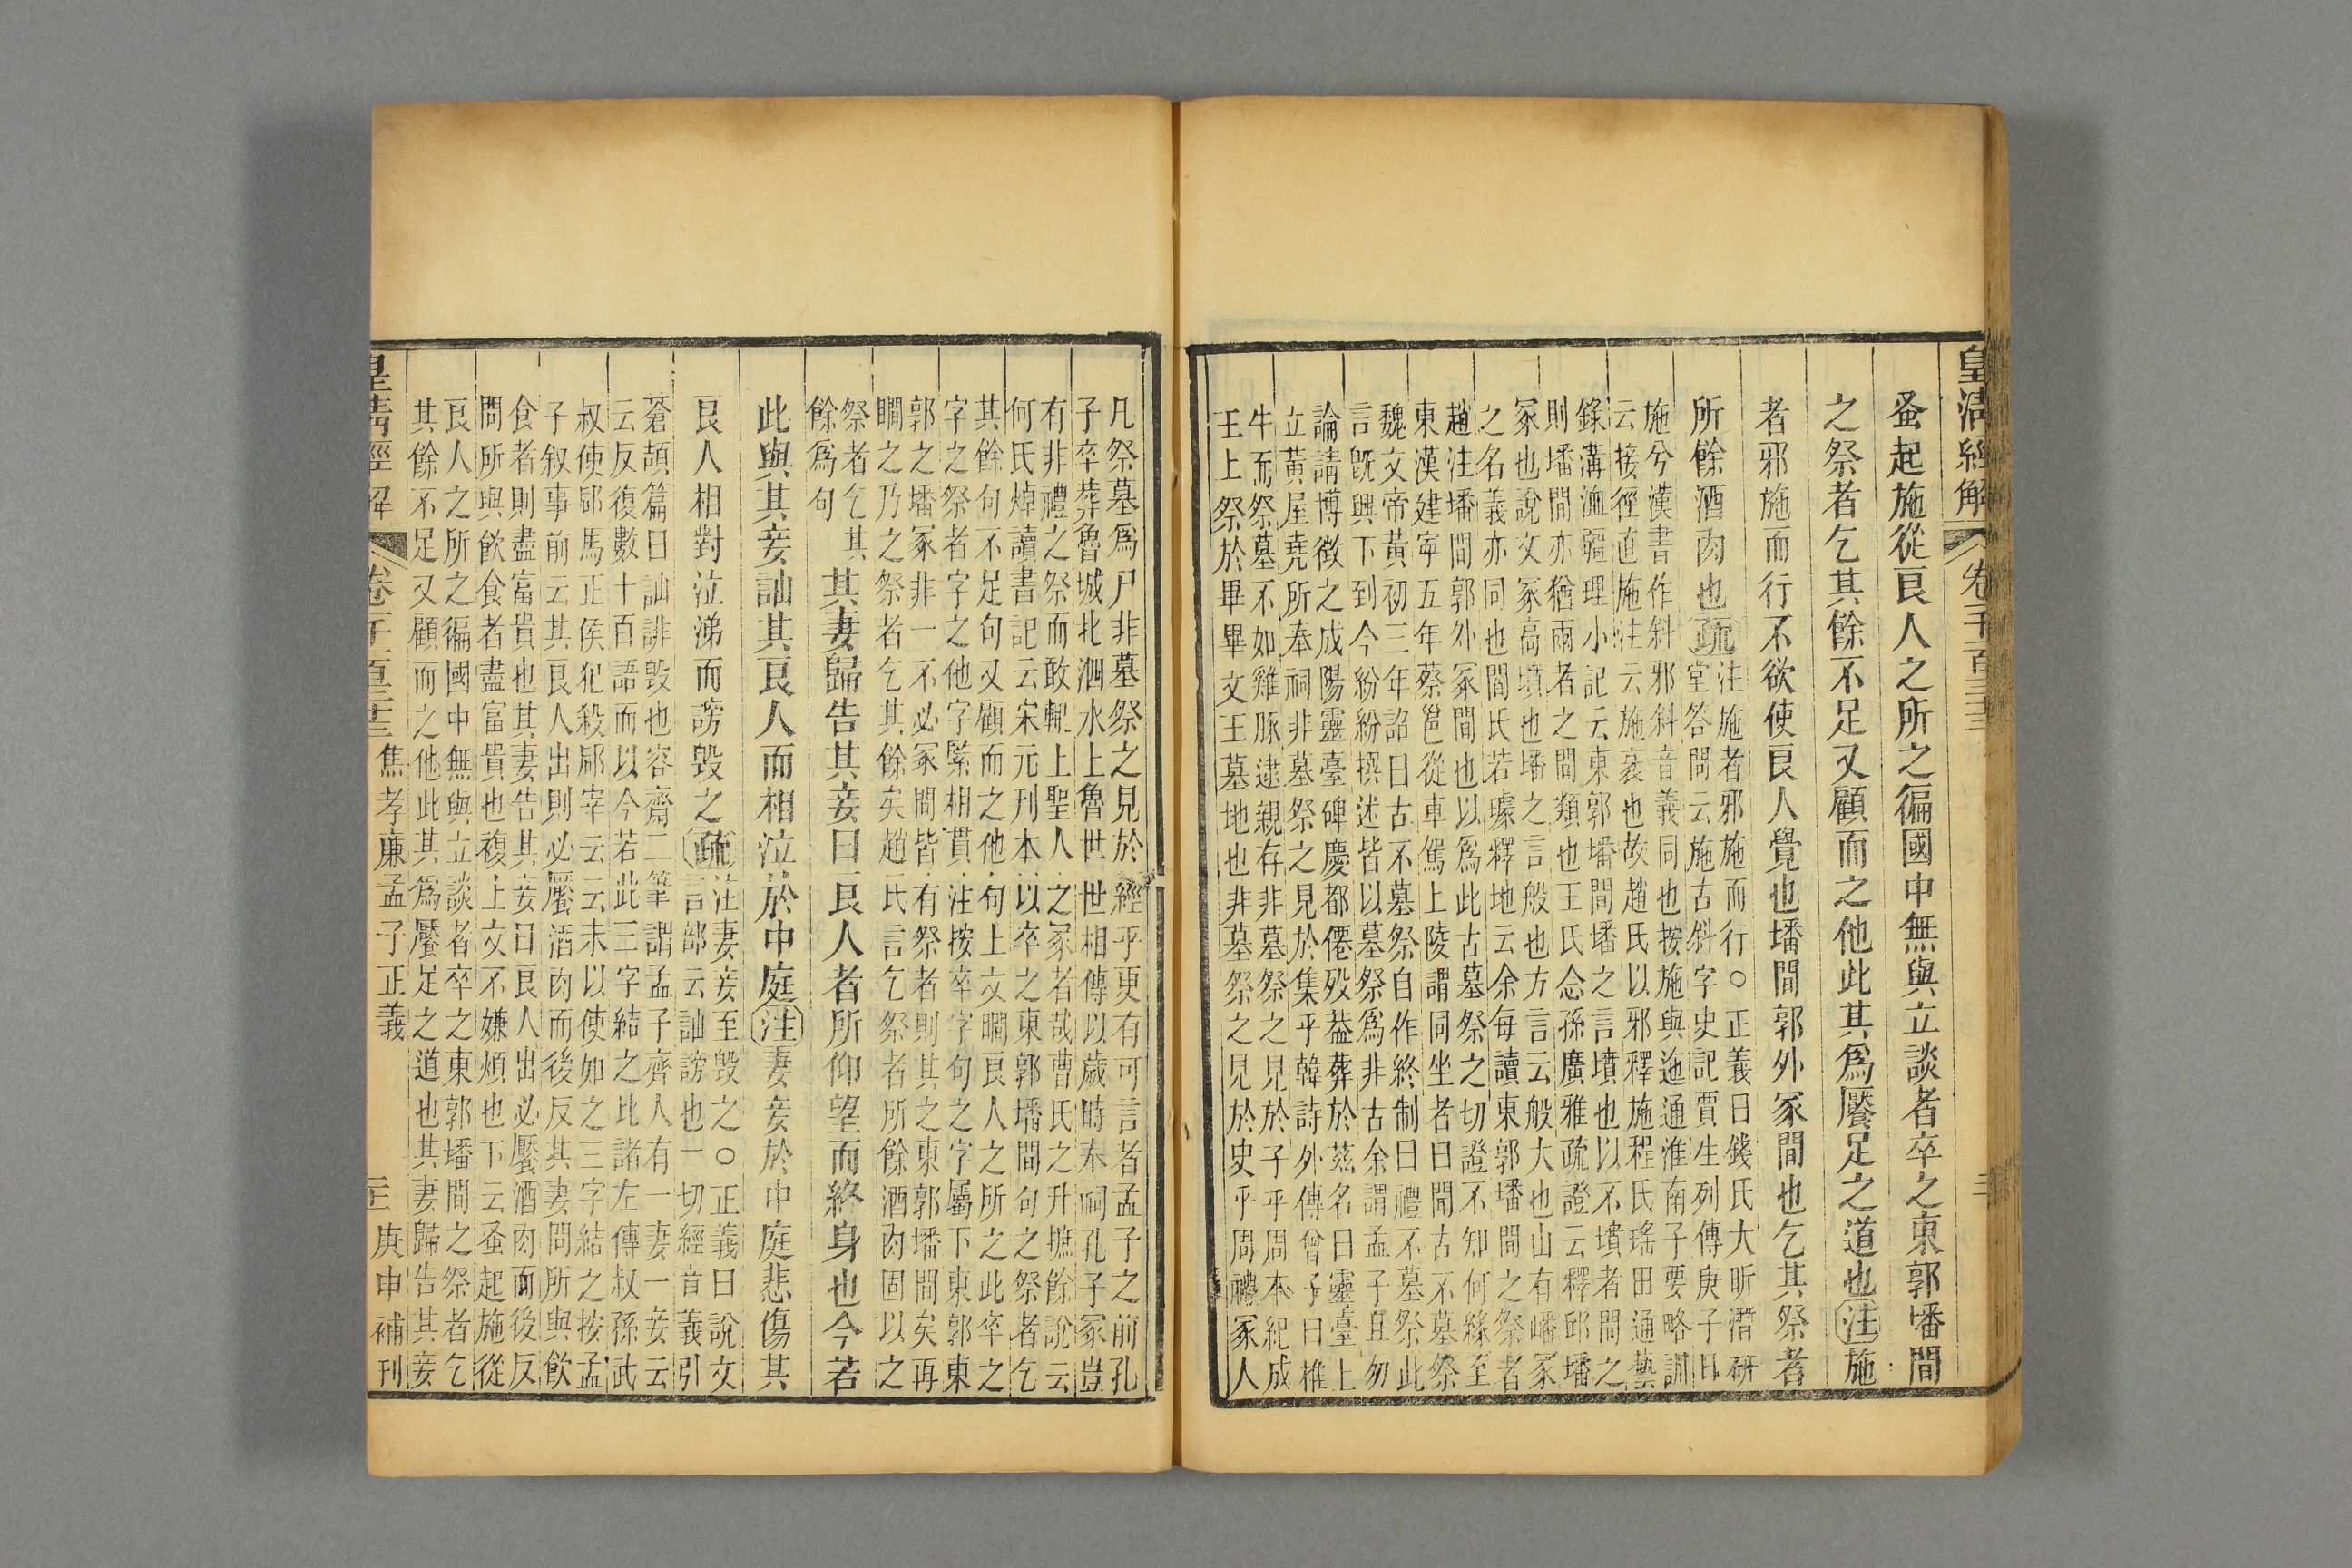 皇清經解 卷千百三十三
蚤起施從良人之所之徧國中無與立談者卒之東郭墦間
之祭者乞其餘不足又顧而之他此其爲饜足之道也注施
者邪施而行不欲使良人覺也墦間郭外冢間也乞其祭者
所餘酒肉也疏
注施者邪施而行○正義曰錢氏大昕潛研
堂答問云施古斜字史記賈生列傳庚子日
施兮漢書作斜邪斜音義同也按施與迤通淮南子要略訓
云接徑直施注云施衺也故趙氏以邪釋施程氏瑤田通藝
錄溝洫疆理小記云東郭墦間墦之言墳也以不墳者間之
則墦間亦猶兩者之間類也王氏念孫廣雅疏證云釋邱墦
冢也說文冢高墳也墦之言般也方言云般大也山有嶓冢
之名義亦同也閻氏若璩釋地云余每讀東郭墦間之祭者
趙注墦間郭外冢間也以爲此古墓祭之切證不知何繇至
東漢建寜五年蔡邕從車駕上陵謂同坐者曰聞古不墓祭
魏文帝黃初三年詔曰古不墓祭自作終制曰禮不墓祭此
言旣興下到今紛紛撰述皆以墓祭爲非古余謂孟子且勿
論請博徵之成陽靈臺碑慶都僊殁葢葬於茲名曰靈臺上
立黃屋堯所奉祠非墓祭之見於集乎韓詩外傳曾子曰椎
牛而祭墓不如雞豚逮親存非墓祭之見於子乎周本紀成
王上祭於畢畢文王墓地也非墓祭之見於史乎周禮冢人
凡祭墓爲尸非墓祭之見於經乎更有可言者孟子之前孔
子卒葬魯城北泗水上魯世世相傳以歲時奉祠孔子冢豈
有非禮之祭而敢輒上聖人之冢者哉曹氏之升摭餘說云
何氏焯讀書記云宋元刊本以卒之東郭墦間句之祭者乞
其餘句不足句又顧而之他句上文瞯良人之所之此卒之
字之祭者字之他字緊相貫注按卒字句之字屬下東郭東
郭之墦冢非一不必冢間皆有祭者則其之東郭墦間矣再
瞯之乃之祭者乞其餘矣趙氏言乞祭者所餘酒肉固以之
祭者乞其
餘爲句
其妻歸告其妾曰良人者所仰望而終身也今若
此與其妾訕其良人而相泣於中庭注妻妾於中庭悲傷其
良人相對泣涕而謗毁之疏
注妻妾至毁之○正義曰說文
言部云訕謗也一切經音義引
蒼頡篇曰訕誹毁也容齋二筆謂孟子齊人有一妻一妾云
云反復數十百語而以今若此三字結之比諸左傳叔孫武
叔使郈馬正侯犯殺郈宰云云未以使如之三字結之按孟
子叙事前云其良人出則必饜酒肉而後反其妻問所與飲
食者則盡富貴也其妻告其妾曰良人出必饜酒肉而後反
問所與飲食者盡富貴也複上文不嫌煩也下云蚤起施從
良人之所之徧國中無與立談者卒之東郭墦間之祭者乞
其餘不足又顧而之他此其爲饜足之道也其妻歸告其妾
皇清經解 卷千百三十三 焦孝廉孟子正義 庚申補刊